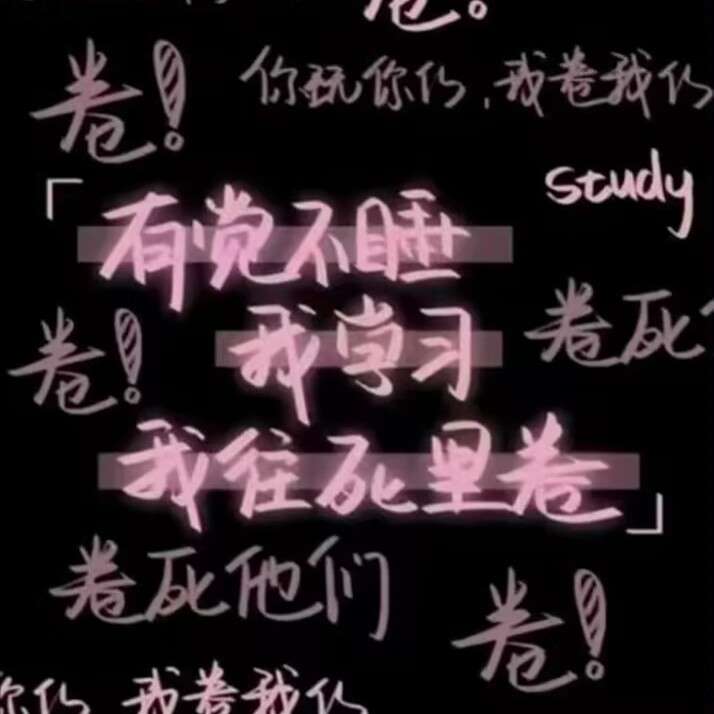 卷。
卷!
你玩你的,我卷我的
study
「有觉不睡
我学习
卷!
卷死
我往死里卷」
卷死他们
卷!
你的 我卷我的